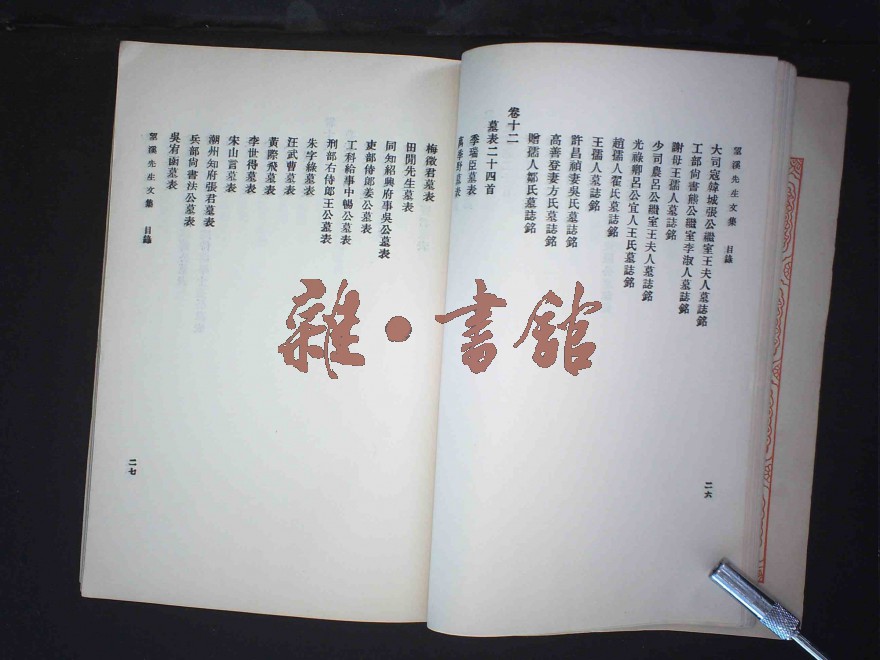 望溪先生文集 目錄
大司寇韓城張公繼室王夫人墓誌銘
工部尚書熊公繼室李淑人墓誌銘
謝母王孺人墓誌銘
少司農呂公繼室王夫人墓誌銘
光祿卿呂公宜人王氏墓誌銘
趙孺人翟氏墓誌銘
王孺人墓誌銘
許昌禎妻吳氏墓誌銘
高善登妻方氏墓誌銘
贈孺人鄒氏墓誌銘
卷十二
墓表二十四首
季瑞臣墓表
萬季野墓表
二六
梅徵君墓表
田間先生墓表
同知紹興府事吳公墓表
吏部侍郎姜公墓表
工科給事中暢公墓表
刑部右侍郎王公墓表
朱字綠墓表
汪武曹墓表
黃際飛墓表
李世得墓表
宋山言墓表
潮州知府張君墓表
兵部尚書法公墓表
吳宥函墓表
望溪先生文集 目錄
二七
雜·書館